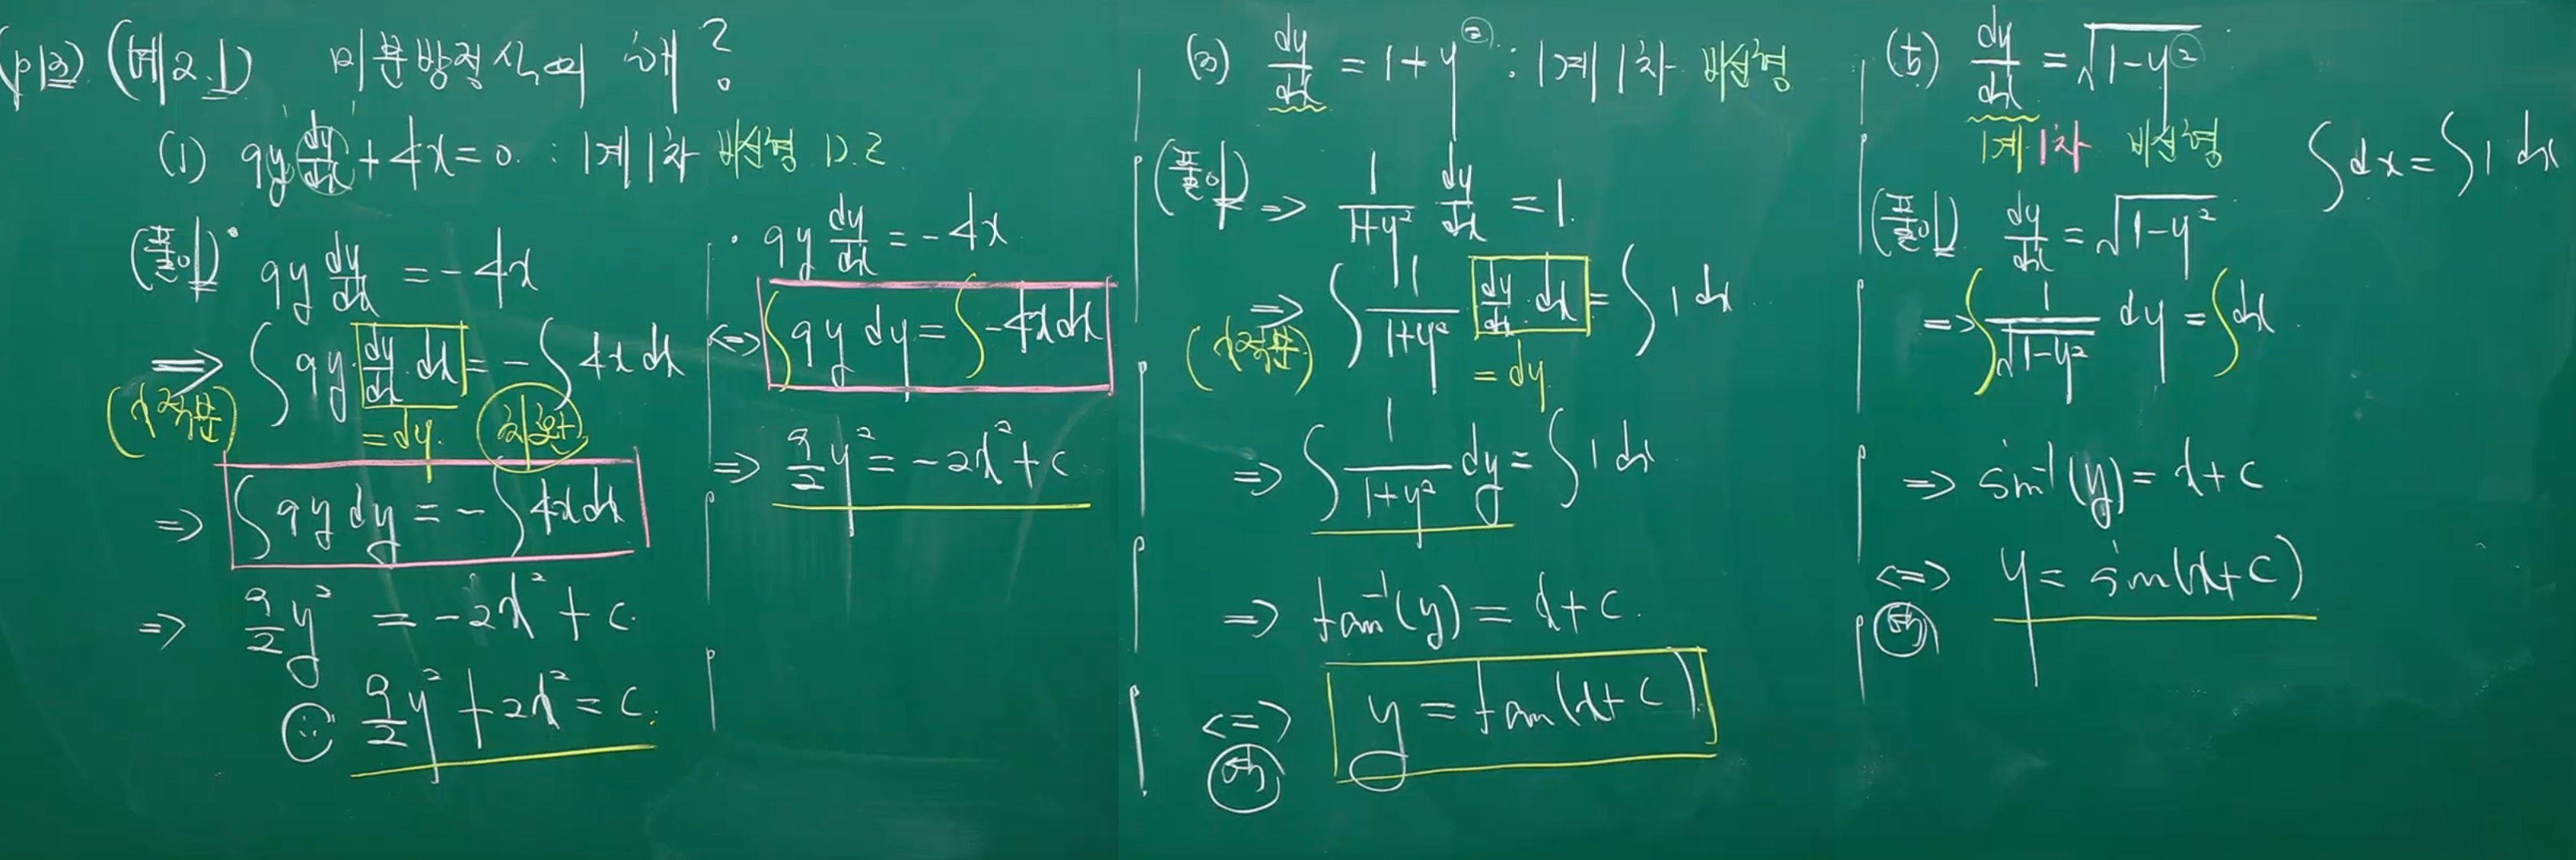 (p13) (예2.1) 미분방정식의 해?
(1) 9y dy/dx + 4x = 0 : 1계 1차 비선형 D.E
(풀이) • 9y dy/dx = -4x
⇒ ∫ 9y · dy/dx · dx = - ∫ 4x dx
(x적분) = dy 치환
⇒ ∫ 9y dy = - ∫ 4x dx
⇒ 9/2 y² = -2x² + c.
9/2 y² + 2x² = c.
• 9y dy/dx = -4x
⇔ ∫ 9y dy = ∫ -4x dx
⇒ 9/2 y² = -2x² + c
(3) dy/dx = 1 + y² : 1계 1차 비선형
(풀이) ⇒ 1/(1+y²) dy/dx = 1.
⇒ ∫ 1/(1+y²) dy/dx · dx = ∫ 1 dx
(x적분) = dy
⇒ ∫ 1/(1+y²) dy = ∫ 1 dx
⇒ tan⁻¹(y) = x + c.
⇔ y = tan(x + c)
(5) dy/dx = √(1-y²)
1계 1차 비선형
∫ dx = ∫ 1 dx
(풀이) dy/dx = √(1-y²)
⇒ ∫ 1/√(1-y²) dy = ∫ dx
⇒ sin⁻¹(y) = x + c
⇔ y = sin(x + c)